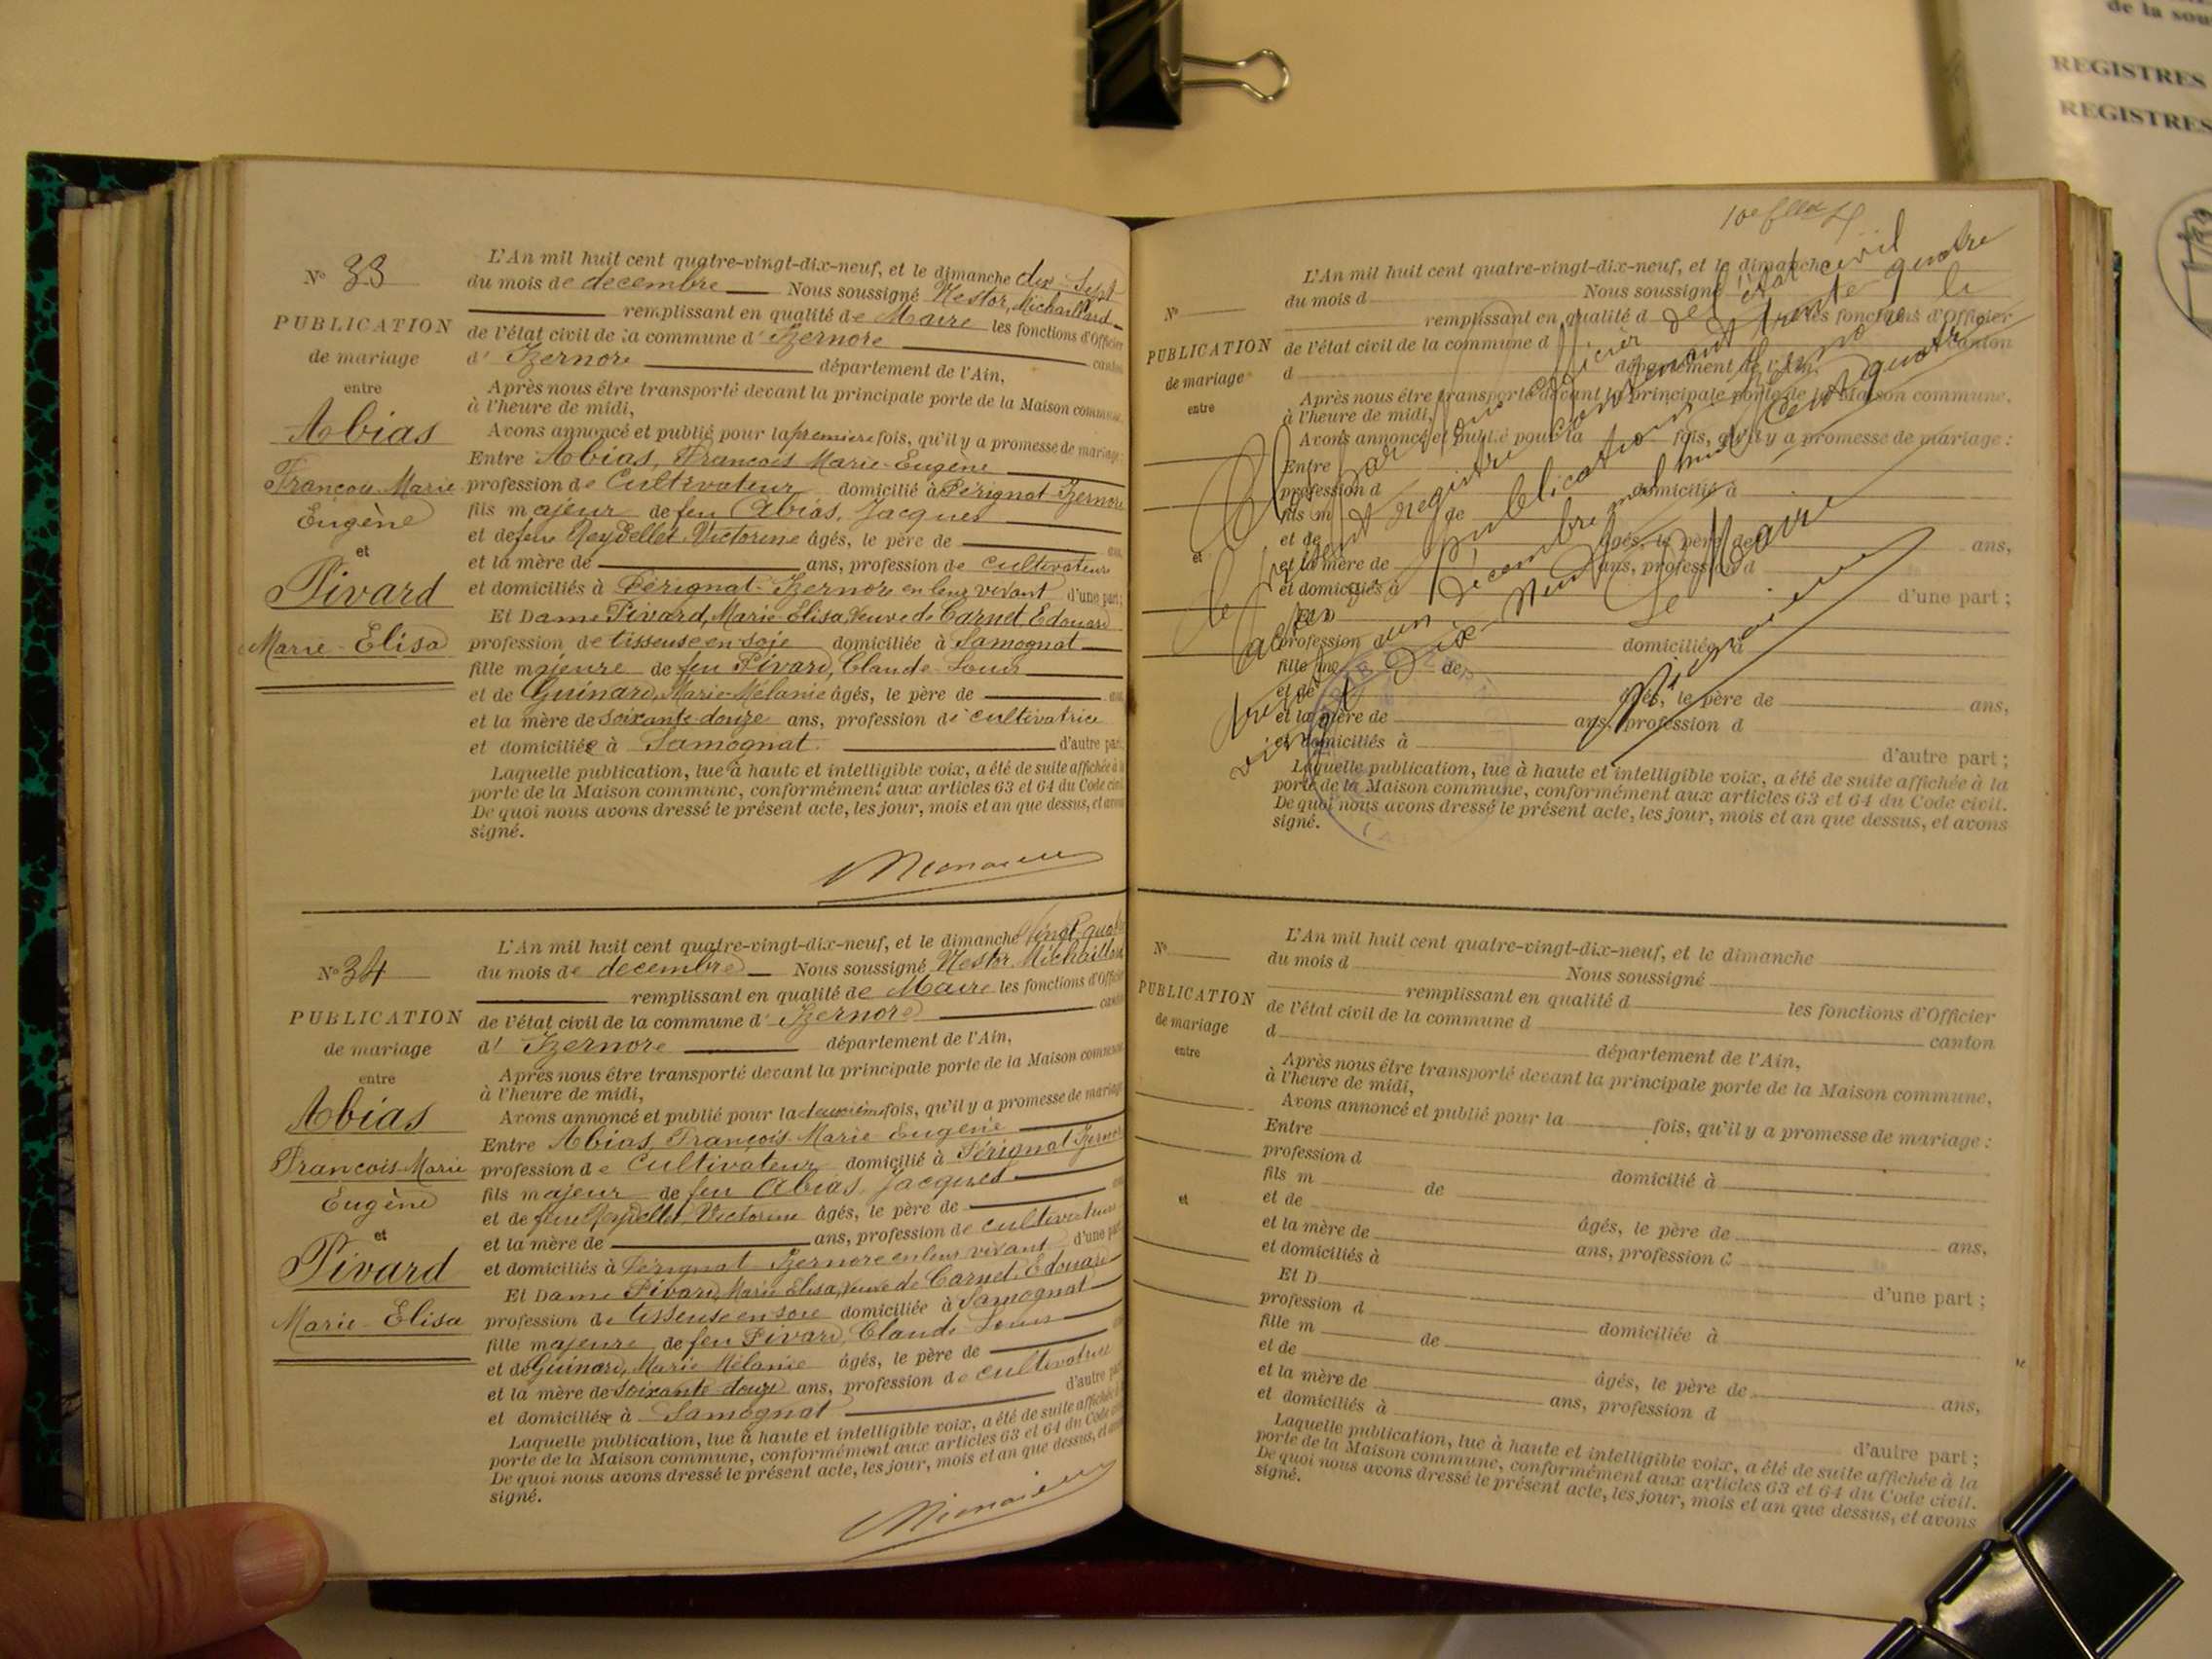 de la sou
REGISTRES
REGISTRES
N° 33
PUBLICATION
de mariage
entre
Abias
François Marie
Eugène
et
Pivard
Marie-Elisa
L'An mil huit cent quatre-vingt-dix-neuf, et le dimanche dix-Sept
du mois de decembre Nous soussigné Nestor, Michaillard
remplissant en qualité de Maire les fonctions d'Officier
de l'état civil de la commune d'Izernore canton
d'Izernore département de l'Ain,
Après nous être transporté devant la principale porte de la Maison commune,
à l'heure de midi,
Avons annoncé et publié pour la premiere fois, qu'il y a promesse de mariage :
Entre Abias, François Marie-Eugène
profession de Cultivateur domicilié à Pérignat-Izernore
fils majeur de feu Abias, Jacques
et de feue Reydellet Victorine âgés, le père de ans,
et la mère de ans, profession de cultivateurs
et domiciliés à Pérignat-Izernore en leur vivant d'une part ;
Et Dame Pivard, Marie Elisa, Veuve de Carnet Edouard
profession de tisseuse en soie domiciliée à Samognat
fille majeure de feu Pivard, Claude Louis
et de Guinard, Marie-Mélanie âgés, le père de ans,
et la mère de soixante-douze ans, profession de cultivatrice
et domiciliée à Samognat d'autre part ;
Laquelle publication, lue à haute et intelligible voix, a été de suite affichée à la
porte de la Maison commune, conformément aux articles 63 et 64 du Code civil.
De quoi nous avons dressé le présent acte, les jour, mois et an que dessus, et avons
signé.
N° 34
PUBLICATION
de mariage
entre
Abias
François-Marie
Eugène
et
Pivard
Marie-Elisa
L'An mil huit cent quatre-vingt-dix-neuf, et le dimanche Vingt-quatre
du mois de decembre Nous soussigné Nestor Michaillard
remplissant en qualité de Maire les fonctions d'Officier
de l'état civil de la commune d'Izernore canton
d'Izernore département de l'Ain,
Après nous être transporté devant la principale porte de la Maison commune,
à l'heure de midi,
Avons annoncé et publié pour la deuxième fois, qu'il y a promesse de mariage
Entre Abias, François-Marie Eugène
profession de Cultivateur domicilié à Pérignat Izernore
fils majeur de feu Abias, Jacques
et de feue Reydellet, Victorine âgés, le père de ans
et la mère de ans, profession de cultivateurs
et domiciliés à Pérignat Izernore en leur vivant d'une part
Et Dame Pivard, Marie Elisa, veuve de Carnet, Edouard
profession de tisseuse en soie domiciliée à Samognat
fille majeure de feu Pivard, Claude Louis
et de Guinard, Marie Mélanie âgés, le père de ans
et la mère de soixante douze ans, profession de cultivatrice
et domiciliée à Samognat d'autre part
Laquelle publication, lue à haute et intelligible voix, a été de suite affichée à
porte de la Maison commune, conformément aux articles 63 et 64 du Code
De quoi nous avons dressé le présent acte, les jour, mois et an que dessus, et avons
signé.
N°
PUBLICATION
de mariage
entre
et
L'An mil huit cent quatre-vingt-dix-neuf, et le dimanche
du mois d Nous soussigné
remplissant en qualité d les fonctions d'Officier
de l'état civil de la commune d canton
d département de l'Ain,
Après nous être transporté devant la principale porte de la Maison commune,
à l'heure de midi,
Avons annoncé et publié pour la fois, qu'il y a promesse de mariage :
Entre
profession d domicilié à
fils m de
et de âgés, le père de ans,
et la mère de ans, profession d
et domiciliés à d'une part ;
Et D
profession d domiciliée à
fille m de
et de âgés, le père de ans,
et la mère de ans, profession d
et domiciliés à d'autre part ;
Laquelle publication, lue à haute et intelligible voix, a été de suite affichée à la
porte de la Maison commune, conformément aux articles 63 et 64 du Code civil.
De quoi nous avons dressé le présent acte, les jour, mois et an que dessus, et avons
signé.
Clos par nous officier de l'état civil
le présent registre contenant trente-quatre
actes de Publications. Izernore le
trente un Décembre mil huit cent quatre
vingt dix-neuf
Le Maire
N°
PUBLICATION
de mariage
entre
et
L'An mil huit cent quatre-vingt-dix-neuf, et le dimanche
du mois d Nous soussigné
remplissant en qualité d les fonctions d'Officier
de l'état civil de la commune d canton
d département de l'Ain,
Après nous être transporté devant la principale porte de la Maison commune,
à l'heure de midi,
Avons annoncé et publié pour la fois, qu'il y a promesse de mariage :
Entre
profession d domicilié à
fils m de
et de âgés, le père de ans,
et la mère de ans, profession d
et domiciliés à d'une part ;
Et D
profession d domiciliée à
fille m de
et de âgés, le père de ans,
et la mère de ans, profession d
et domiciliés à d'autre part ;
Laquelle publication, lue à haute et intelligible voix, a été de suite affichée à la
porte de la Maison commune, conformément aux articles 63 et 64 du Code civil.
De quoi nous avons dressé le présent acte, les jour, mois et an que dessus, et avons
signé.